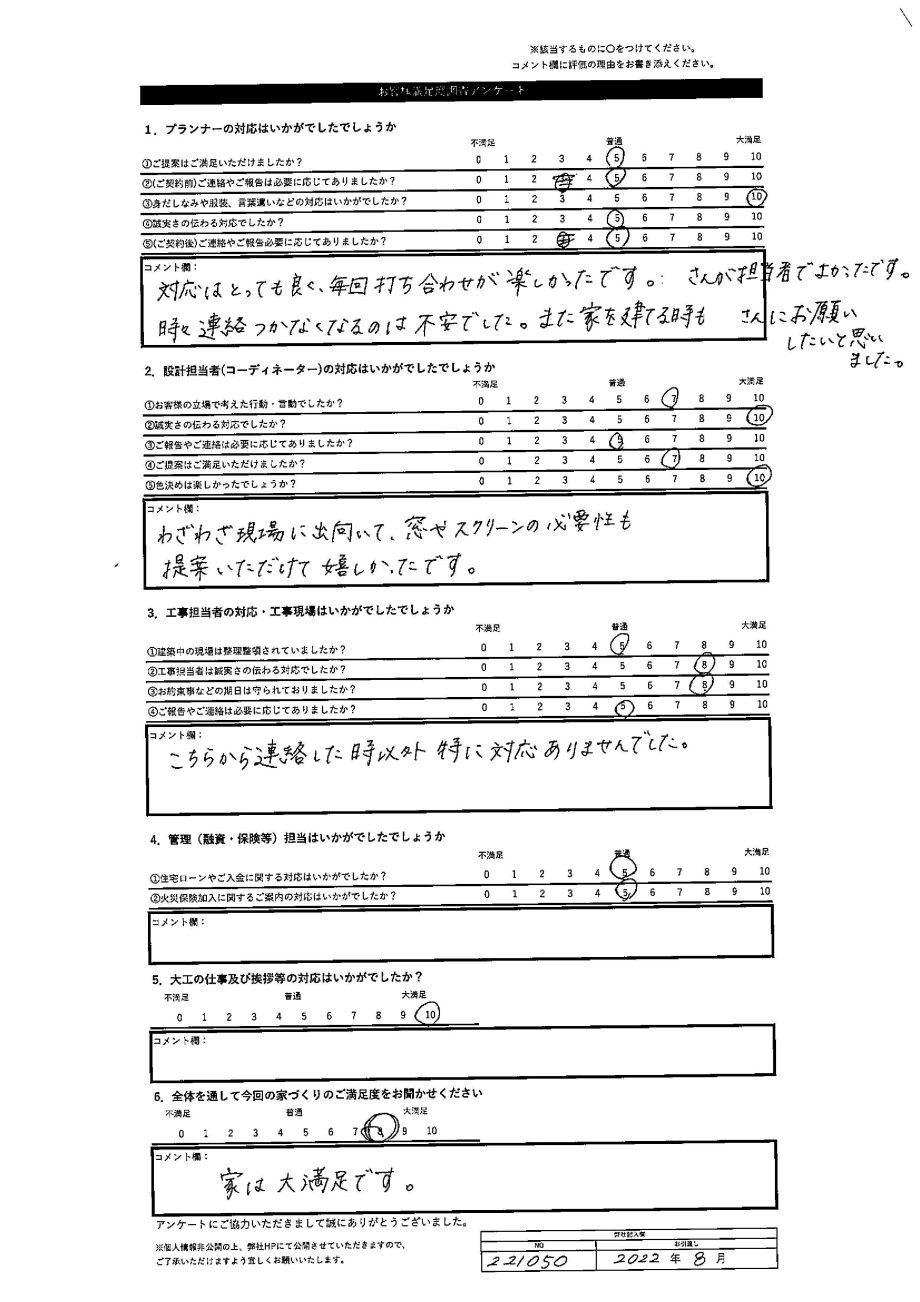 ※該当するものに〇をつけてください。
コメント欄に評価の理由をお書き添えください。
お客様満足度調査アンケート
1．プランナーの対応はいかがでしたでしょうか
不満足 普通 大満足
①ご提案はご満足いただけましたか？ 0 1 2 3 4 5 6 7 8 9 10
②(ご契約前)ご連絡やご報告は必要に応じてありましたか？ 0 1 2 3 4 5 6 7 8 9 10
③身だしなみや服装、言葉遣いなどの対応はいかがでしたか？ 0 1 2 3 4 5 6 7 8 9 10
④誠実さの伝わる対応でしたか？ 0 1 2 3 4 5 6 7 8 9 10
⑤(ご契約後)ご連絡やご報告必要に応じてありましたか？ 0 1 2 3 4 5 6 7 8 9 10
コメント欄：
対応はとっても良く、毎回打ち合わせが楽しかったです。 さんが担当者でよかったです。
時々連絡つかなくなるのは不安でした。また家を建てる時も さんにお願い
したいと思い
ました。
2．設計担当者(コーディネーター)の対応はいかがでしたでしょうか
不満足 普通 大満足
①お客様の立場で考えた行動・言動でしたか？ 0 1 2 3 4 5 6 7 8 9 10
②誠実さの伝わる対応でしたか？ 0 1 2 3 4 5 6 7 8 9 10
③ご報告やご連絡は必要に応じてありましたか？ 0 1 2 3 4 5 6 7 8 9 10
④ご提案はご満足いただけましたか？ 0 1 2 3 4 5 6 7 8 9 10
⑤色決めは楽しかったでしょうか？ 0 1 2 3 4 5 6 7 8 9 10
コメント欄：
わざわざ現場に出向いて、窓やスクリーンの必要性も
提案いただけて嬉しかったです。
3．工事担当者の対応・工事現場はいかがでしたでしょうか
不満足 普通 大満足
①建築中の現場は整理整頓されていましたか？ 0 1 2 3 4 5 6 7 8 9 10
②工事担当者は誠実さの伝わる対応でしたか？ 0 1 2 3 4 5 6 7 8 9 10
③お約束事などの期日は守られておりましたか？ 0 1 2 3 4 5 6 7 8 9 10
④ご報告やご連絡は必要に応じてありましたか？ 0 1 2 3 4 5 6 7 8 9 10
コメント欄：
こちらから連絡した時以外特に対応ありませんでした。
4．管理（融資・保険等）担当はいかがでしたでしょうか
不満足 普通 大満足
①住宅ローンやご入金に関する対応はいかがでしたか？ 0 1 2 3 4 5 6 7 8 9 10
②火災保険加入に関するご案内の対応はいかがでしたか？ 0 1 2 3 4 5 6 7 8 9 10
コメント欄：
5．大工の仕事及び挨拶等の対応はいかがでしたか？
不満足 普通 大満足
0 1 2 3 4 5 6 7 8 9 10
コメント欄：
6．全体を通して今回の家づくりのご満足度をお聞かせください
不満足 普通 大満足
0 1 2 3 4 5 6 7 8 9 10
コメント欄：
家は大満足です。
アンケートにご協力いただきまして誠にありがとうございました。
※個人情報非公開の上、弊社HPにて公開させていただきますので、
ご了承いただけますよう宜しくお願いいたします。
弊社記入欄
NO お引渡し
221050 2022年8月